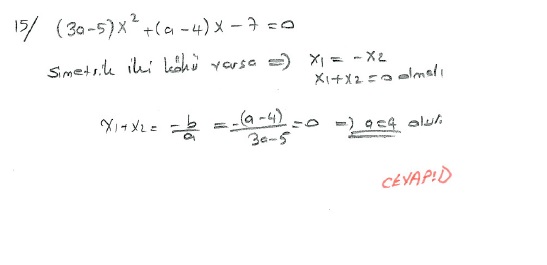 15/ (3a-5)x² + (a-4)x - 7 = 0
Simetrik iki kökü varsa => x₁ = -x₂
x₁+x₂ = 0 olmalı
x₁+x₂ = -b/a = -(a-4)/3a-5 = 0 => a=4 olur.
CEVAP:D